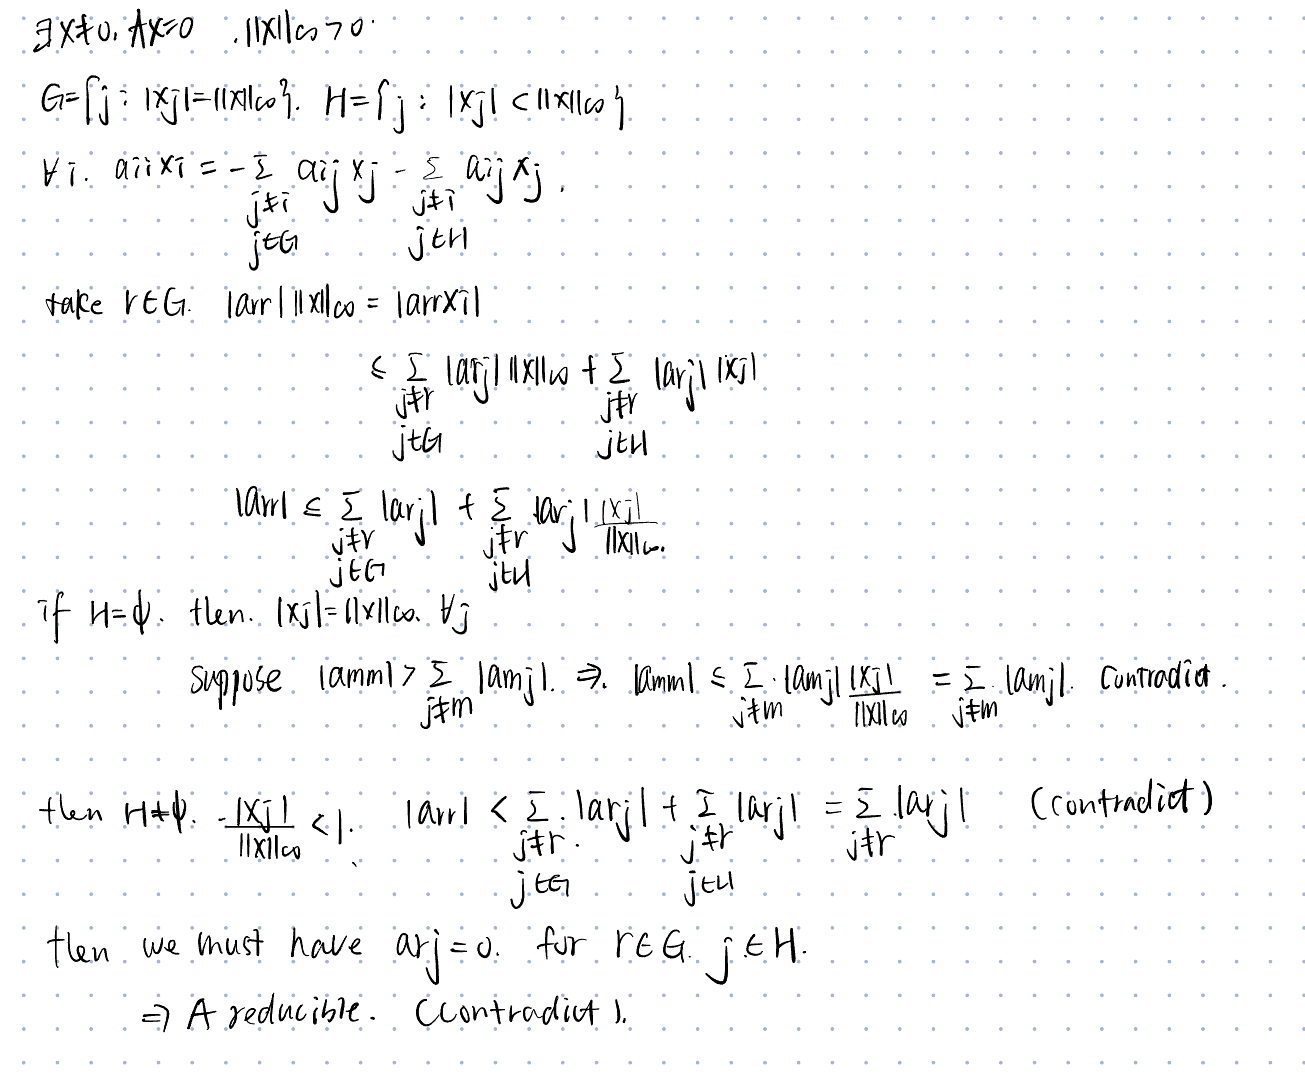 ∃x≠0. Ax=0 . ||x||∞ > 0.
G={j : |xj|=||x||∞}. H={j : |xj| < ||x||∞}
∀i. aii xi = - Σ_{j≠i, j∈G} aij xj - Σ_{j≠i, j∈H} aij xj .
take r∈G. |arr| ||x||∞ = |arr xi|
≤ Σ_{j≠r, j∈G} |arj| ||x||∞ + Σ_{j≠r, j∈H} |arj| |xj|
|arr| ≤ Σ_{j≠r, j∈G} |arj| + Σ_{j≠r, j∈H} |arj| |xj|/||x||∞.
if H=ϕ. then. |xj|=||x||∞. ∀j
suppose |amm| > Σ_{j≠m} |amj|. ⇒. |amm| ≤ Σ_{j≠m} |amj| |xj|/||x||∞ = Σ_{j≠m} |amj|. contradict.
then H≠ϕ. |xj|/||x||∞ < 1. |arr| < Σ_{j≠r, j∈G} |arj| + Σ_{j≠r, j∈H} |arj| = Σ_{j≠r} |arj| (contradict)
then we must have arj = 0. for r∈G. j∈H.
⇒ A reducible. (contradict).